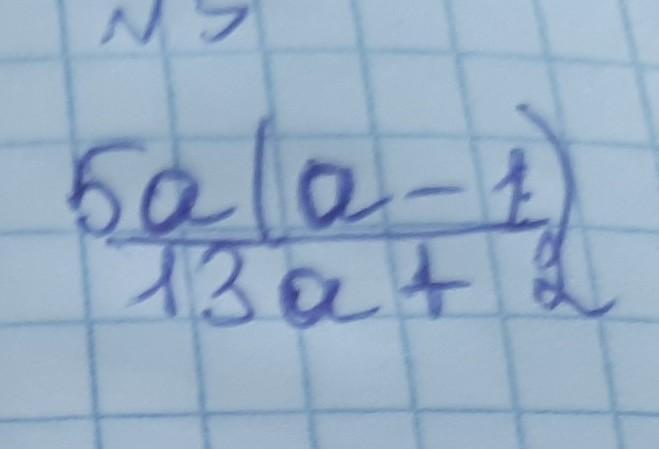 N 5
5a(a-1)
13a+2